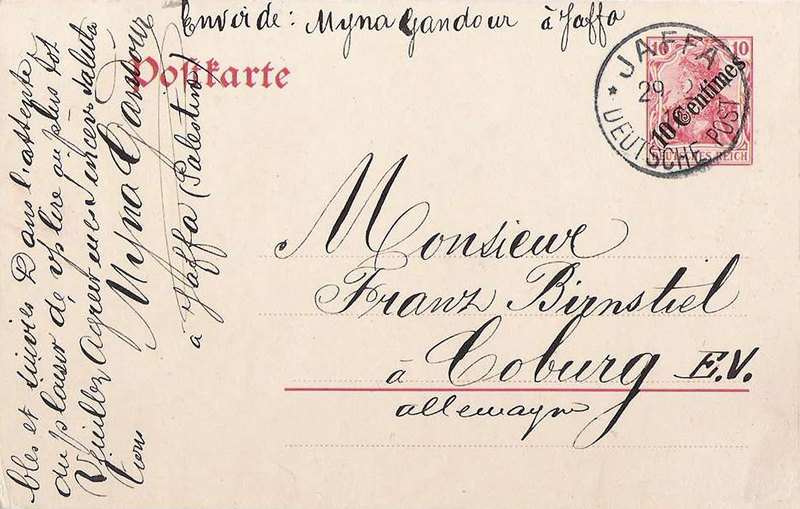 Envoi de: Myna Gandour à Jaffa
Postkarte
10 10
10 Centimes
DEUTSCHES REICH
* JAFFA *
29
DEUTSCHE POST
Monsieur
Franz Birnstiel
à Coburg E.V.
allemagne
bles et suivies Dans l'attente
du plaisir de vs lire au plus tôt
Veuillez Agréer mes sincers saluta
tions
Myna Gandour
à Jaffa (Palestine)